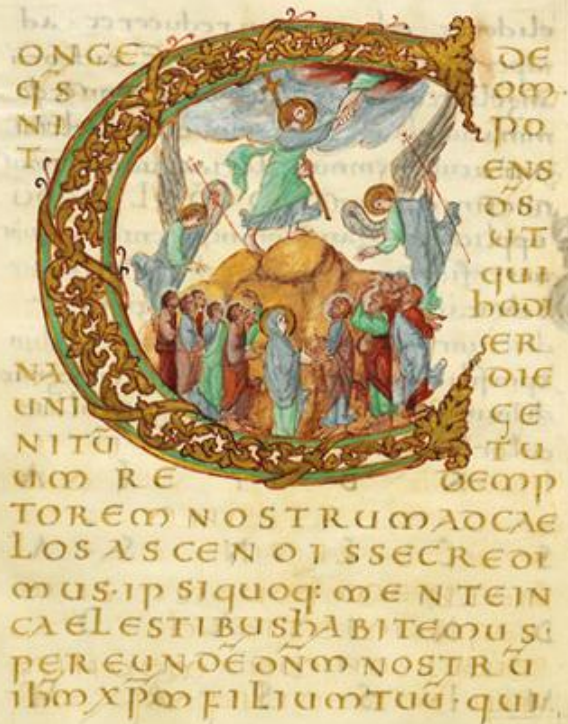 CONCE DE
q̄S OM·
NI PO
T ENS
D̄S
UT
QUI
hODI
ER
NA DIE
UNI GE
NITŪ TU
UM RE DEMP
TOREM NOSTRUM AD CAE
LOS ASCENDISSE CREDI
MUS· IPSI QUOQ: MENTE IN
CAELESTIBUS hABITEMUS·
PER EUNDĒ DN̄M NOSTRŪ
Ih̄M XP̄M FILIUM TUŪ· QUI